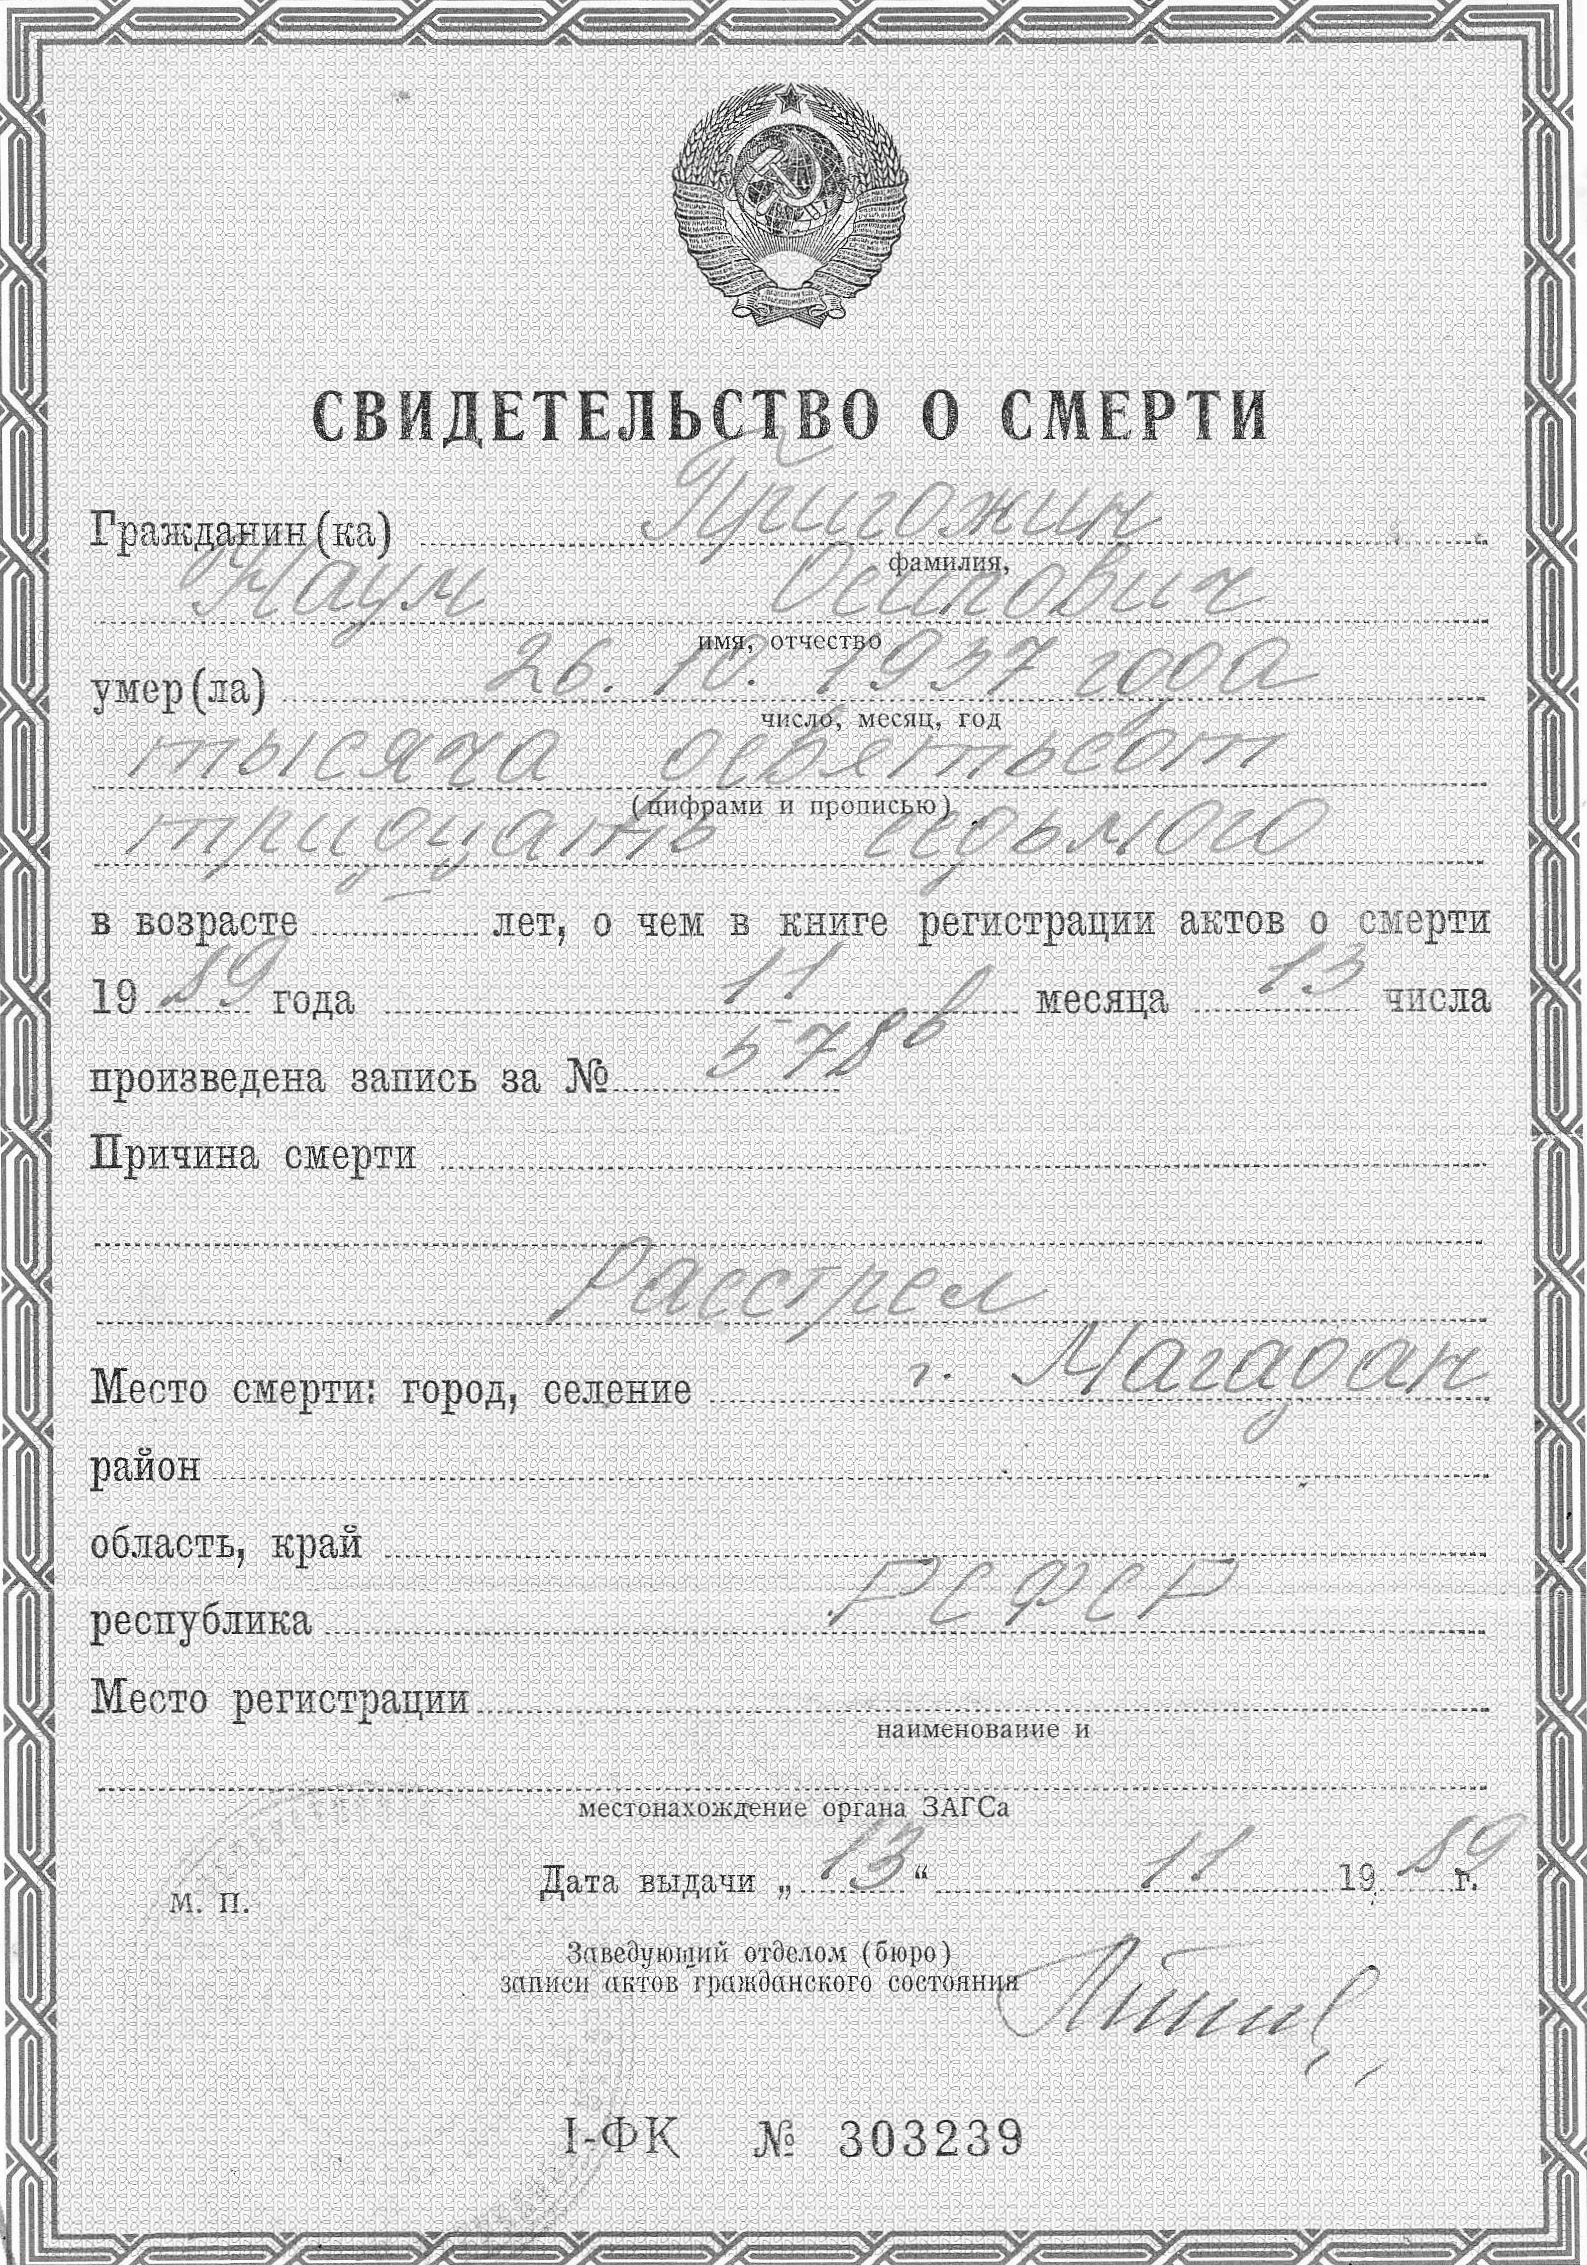 СВИДЕТЕЛЬСТВО О СМЕРТИ
Гражданин(ка) Пригожин
фамилия,
Наум Осипович
имя, отчество
умер(ла) 26. 10. 1937 года
число, месяц, год
тысяча девятьсот
(цифрами и прописью)
тридцать седьмого
в возрасте — лет, о чем в книге регистрации актов о смерти
19 89 года 11 месяца 13 числа
произведена запись за № 578в
Причина смерти
Расстрел
Место смерти: город, селение г. Магадан
район
область, край
республика РСФСР
Место регистрации
наименование и
местонахождение органа ЗАГСа
Дата выдачи „ 13 “ 11 19 89 г.
М. П.
Заведующий отделом (бюро)
записи актов гражданского состояния
I-ФК № 303239